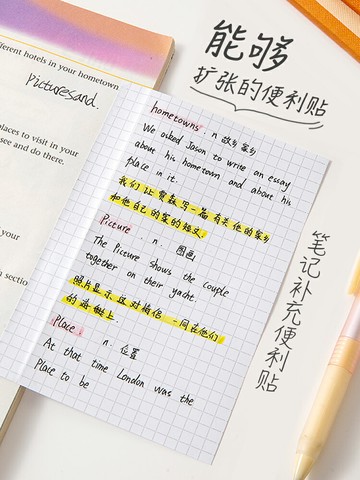 能够
扩张的便利贴
fferent hotels in your hometown
Picturesand.
places to visit in your
see and do there.
your
section
hometowns n 故乡家乡
We asked Jason to write an essay
about his hometown and about his
place in it.
我们让贾森写一篇有关他的家乡
和他自己的家的短文.
Picture. n. 图画
The Picture shows the couple
together on their yacht.
照片显示这对情侣一同在他们
的游艇上.
Place. n. 位置
At that time London was the
Place to be
笔记补充便利贴